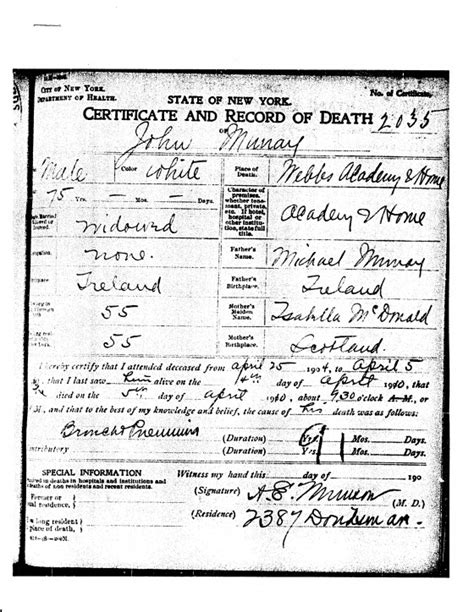 CITY OF NEW YORK.
DEPARTMENT OF HEALTH.
No. of Certificate.
STATE OF NEW YORK.
CERTIFICATE AND RECORD OF DEATH 2035
OF
John Murray
Male Color White Place of Death. Webbs Academy & Home
75 Yrs. — Mos. — Days. Character of premises, whether tenement, private, etc. If hotel, hospital or other institution, state full title. Academy & Home
Widowed
none. Father's Name. Michael Murray
Ireland Father's Birthplace. Ireland
55 Mother's Maiden Name. Isabella McDonald
55 Mother's Birthplace. Scotland
I hereby certify that I attended deceased from April 25 1904, to April 5
that I last saw him alive on the 4th day of April 1910, that
died on the 5th day of April 1910, about 9,30 o'clock A.M., or
M., and that to the best of my knowledge and belief, the cause of his death was as follows:
Broncho Pneumonia
(Duration) Yrs. Mos. Days.
(Duration) Yrs. Mos. Days.
SPECIAL INFORMATION
deaths in hospitals and institutions and
deaths of non residents and recent residents.
Witness my hand this day of 190
Former or
residence,
(Signature) (M. D.)
long resident
place of death,
(Residence) 2387